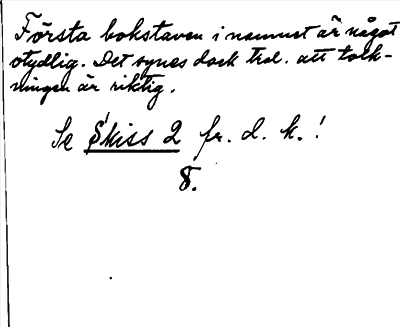 Första bokstaven i namnet är något
otydlig. Det synes dock trol. att tolk-
ningen är riktig.
Se Skiss 2 fr. d. k.!
8.